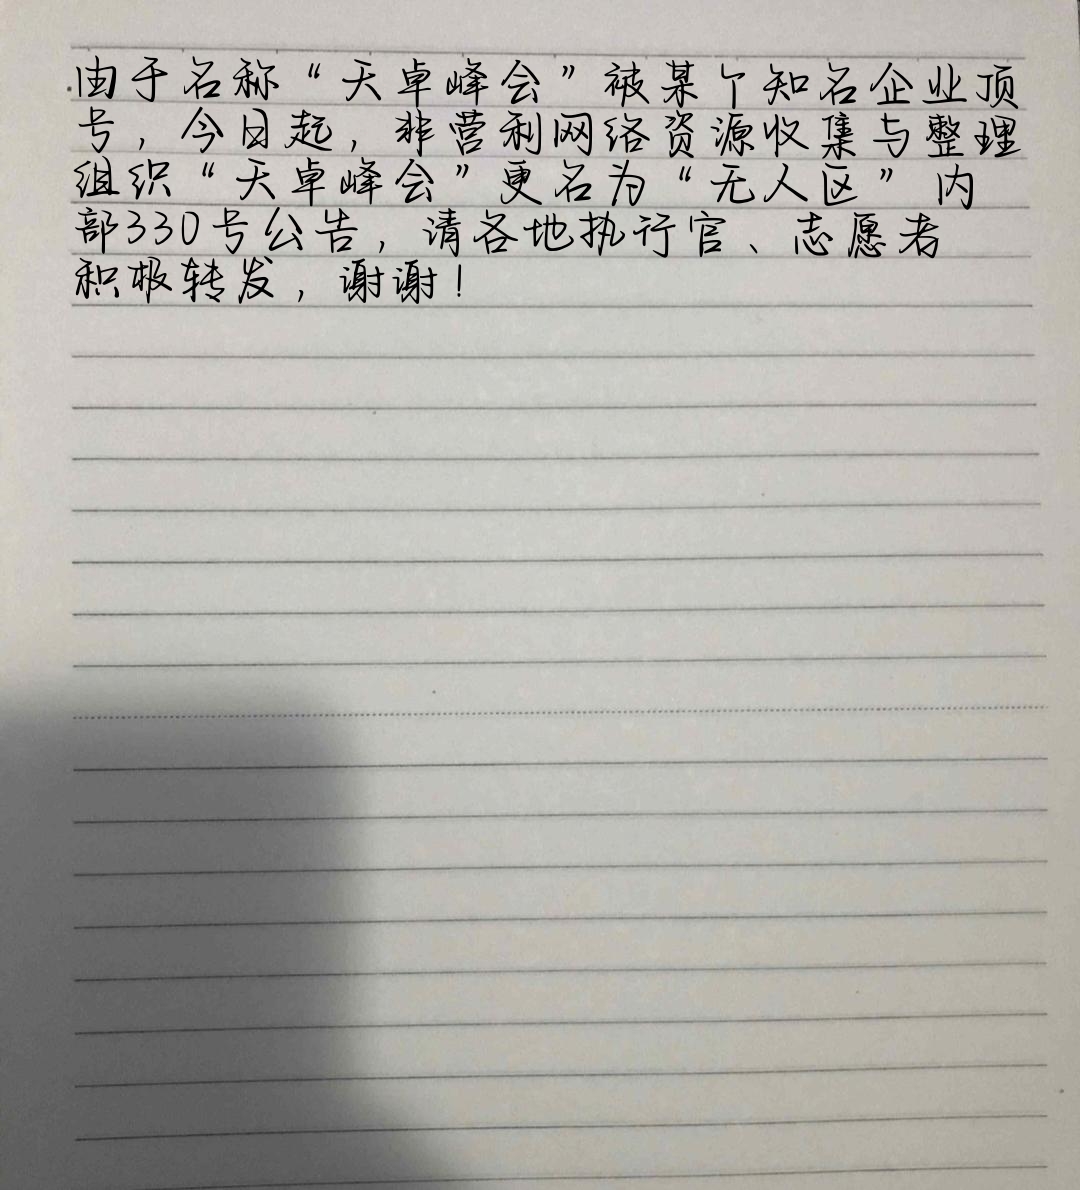 由于名称“天卓峰会”被某个知名企业顶
号，今日起，非营利网络资源收集与整理
组织“天卓峰会”更名为“无人区”内
部330号公告，请各地执行官、志愿者
积极转发，谢谢！